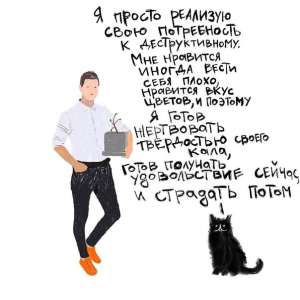 Я просто реализую
свою потребность
к деструктивному.
Мне нравится
иногда вести
себя плохо,
нравится вкус
цветов, и поэтому
я готов
жертвовать
твёрдостью своего
кала,
готов получать
удовольствие сейчас
и страдать потом